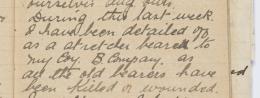 ourselves and guns.
During this last week.
I have been detailed off
as a stretcher bearer to
my Coy. B Company. as
all the old bearers have
been killed or wounded.
ed